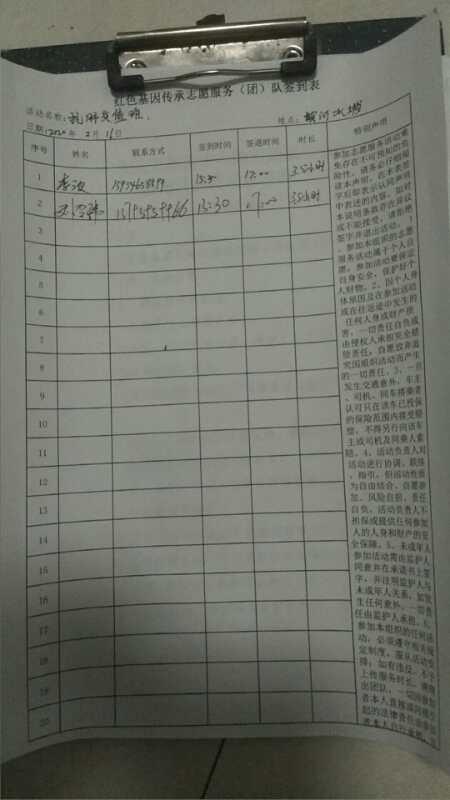 红色基因传承志愿服务（团）队签到表
活动名称：抗肺炎值班
地点：
日期：2020年2月16日
序号 姓名 联系方式 签到时间 签退时间 时长 特别声明
1 13:30 17:00 3.5小时
2 13:30 17:00 3.5小时
3
4
5
6
7
8
9
10
11
12
13
14
15
16
17
18
19
20
参加志愿服务活动难
免存在不可预知的危
险性，请务必仔细阅
读本声明，在本表签
字后即表示认同声明
中表述的内容。如对
本说明条款存在异议
或不能接受，请拒绝
签字并退出活动。
1、参加本组织的志愿
服务活动属于个人自
愿，参加活动要保证
自身安全，保护好个
人财物。2、因个人身
体原因及在参加活动
或在往返途中发生的
任何人身或财产损
害，一切责任自负或
由侵权人承担完全赔
偿责任，自愿放弃追
究因组织活动而产生
的一切责任。3、一旦
发生交通意外，车主
、司机、同车搭乘者
认可只在该车已投保
的保险范围内接受赔
偿，不得另行向该车
主或司机及同乘人索
赔。4、活动负责人对
活动进行协调、联络
、指引，但活动性质
为自由结合、自愿参
加、风险自担、责任
自负，活动负责人不
担保或提供任何参加
人的人身和财产的安
全保障。5、未成年人
参加活动需由监护人
同意并在承诺书上签
字，并注明监护人与
未成年人关系，如发
生任何意外，一切责
任由监护人承担。6、
参加本组织的任何活
动，必须遵守相关规
定制度，服从活动安
排；如有违反，不予
上传服务时长，清理
出团队，一切因参加
者本人直接或间接引
起的法律责任由参加
者本人自行承担。